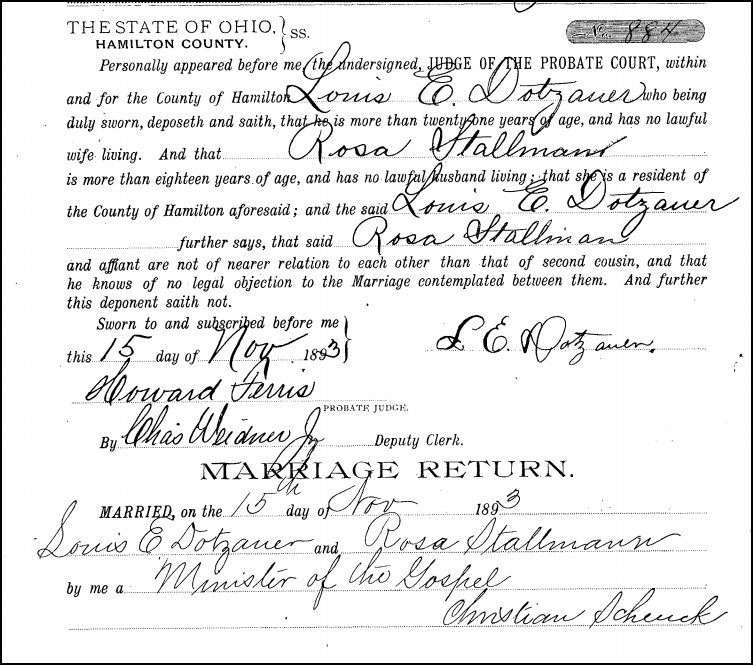 THE STATE OF OHIO, } SS.
No. 884
HAMILTON COUNTY.
Personally appeared before me, the undersigned, JUDGE OF THE PROBATE COURT, within
and for the County of Hamilton Louis E. Dotzauer who being
duly sworn, deposeth and saith, that he is more than twenty-one years of age, and has no lawful
wife living. And that Rosa Stallmann
is more than eighteen years of age, and has no lawful husband living; that she is a resident of
the County of Hamilton aforesaid; and the said Louis E. Dotzauer
further says, that said Rosa Stallman
and affiant are not of nearer relation to each other than that of second cousin, and that
he knows of no legal objection to the Marriage contemplated between them. And further
this deponent saith not.
Sworn to and subscribed before me }
this 15 day of Nov 1893 L E. Dotzauer.
Howard Ferris
PROBATE JUDGE.
By Chas Weidner Jr Deputy Clerk.
MARRIAGE RETURN.
MARRIED, on the 15th day of Nov 1893
Louis E Dotzauer and Rosa Stallmann
by me a Minister of the Gospel
Christian Schenck